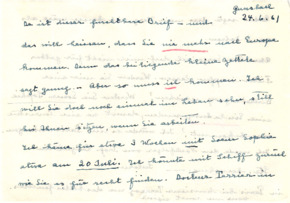 Gunsbach
24.6.61
Da ist dieser furchtbare Brief – und
das will heissen, dass Sie nie mehr nach Europa
kommen. Denn das beiliegende kleine
genug. – Aber so muss ich kommen. Ich
will Sie doch noch einmal im Leben sehen, still
bei Ihnen sitzen, wenn Sie arbeiten.
Ich käme für etwa 3 Wochen mit Soeur Sophie
etwa am 20 Juli. Ich könnte mit Schiff zurück
wie Sie es für recht finden. Docteur Perrier in